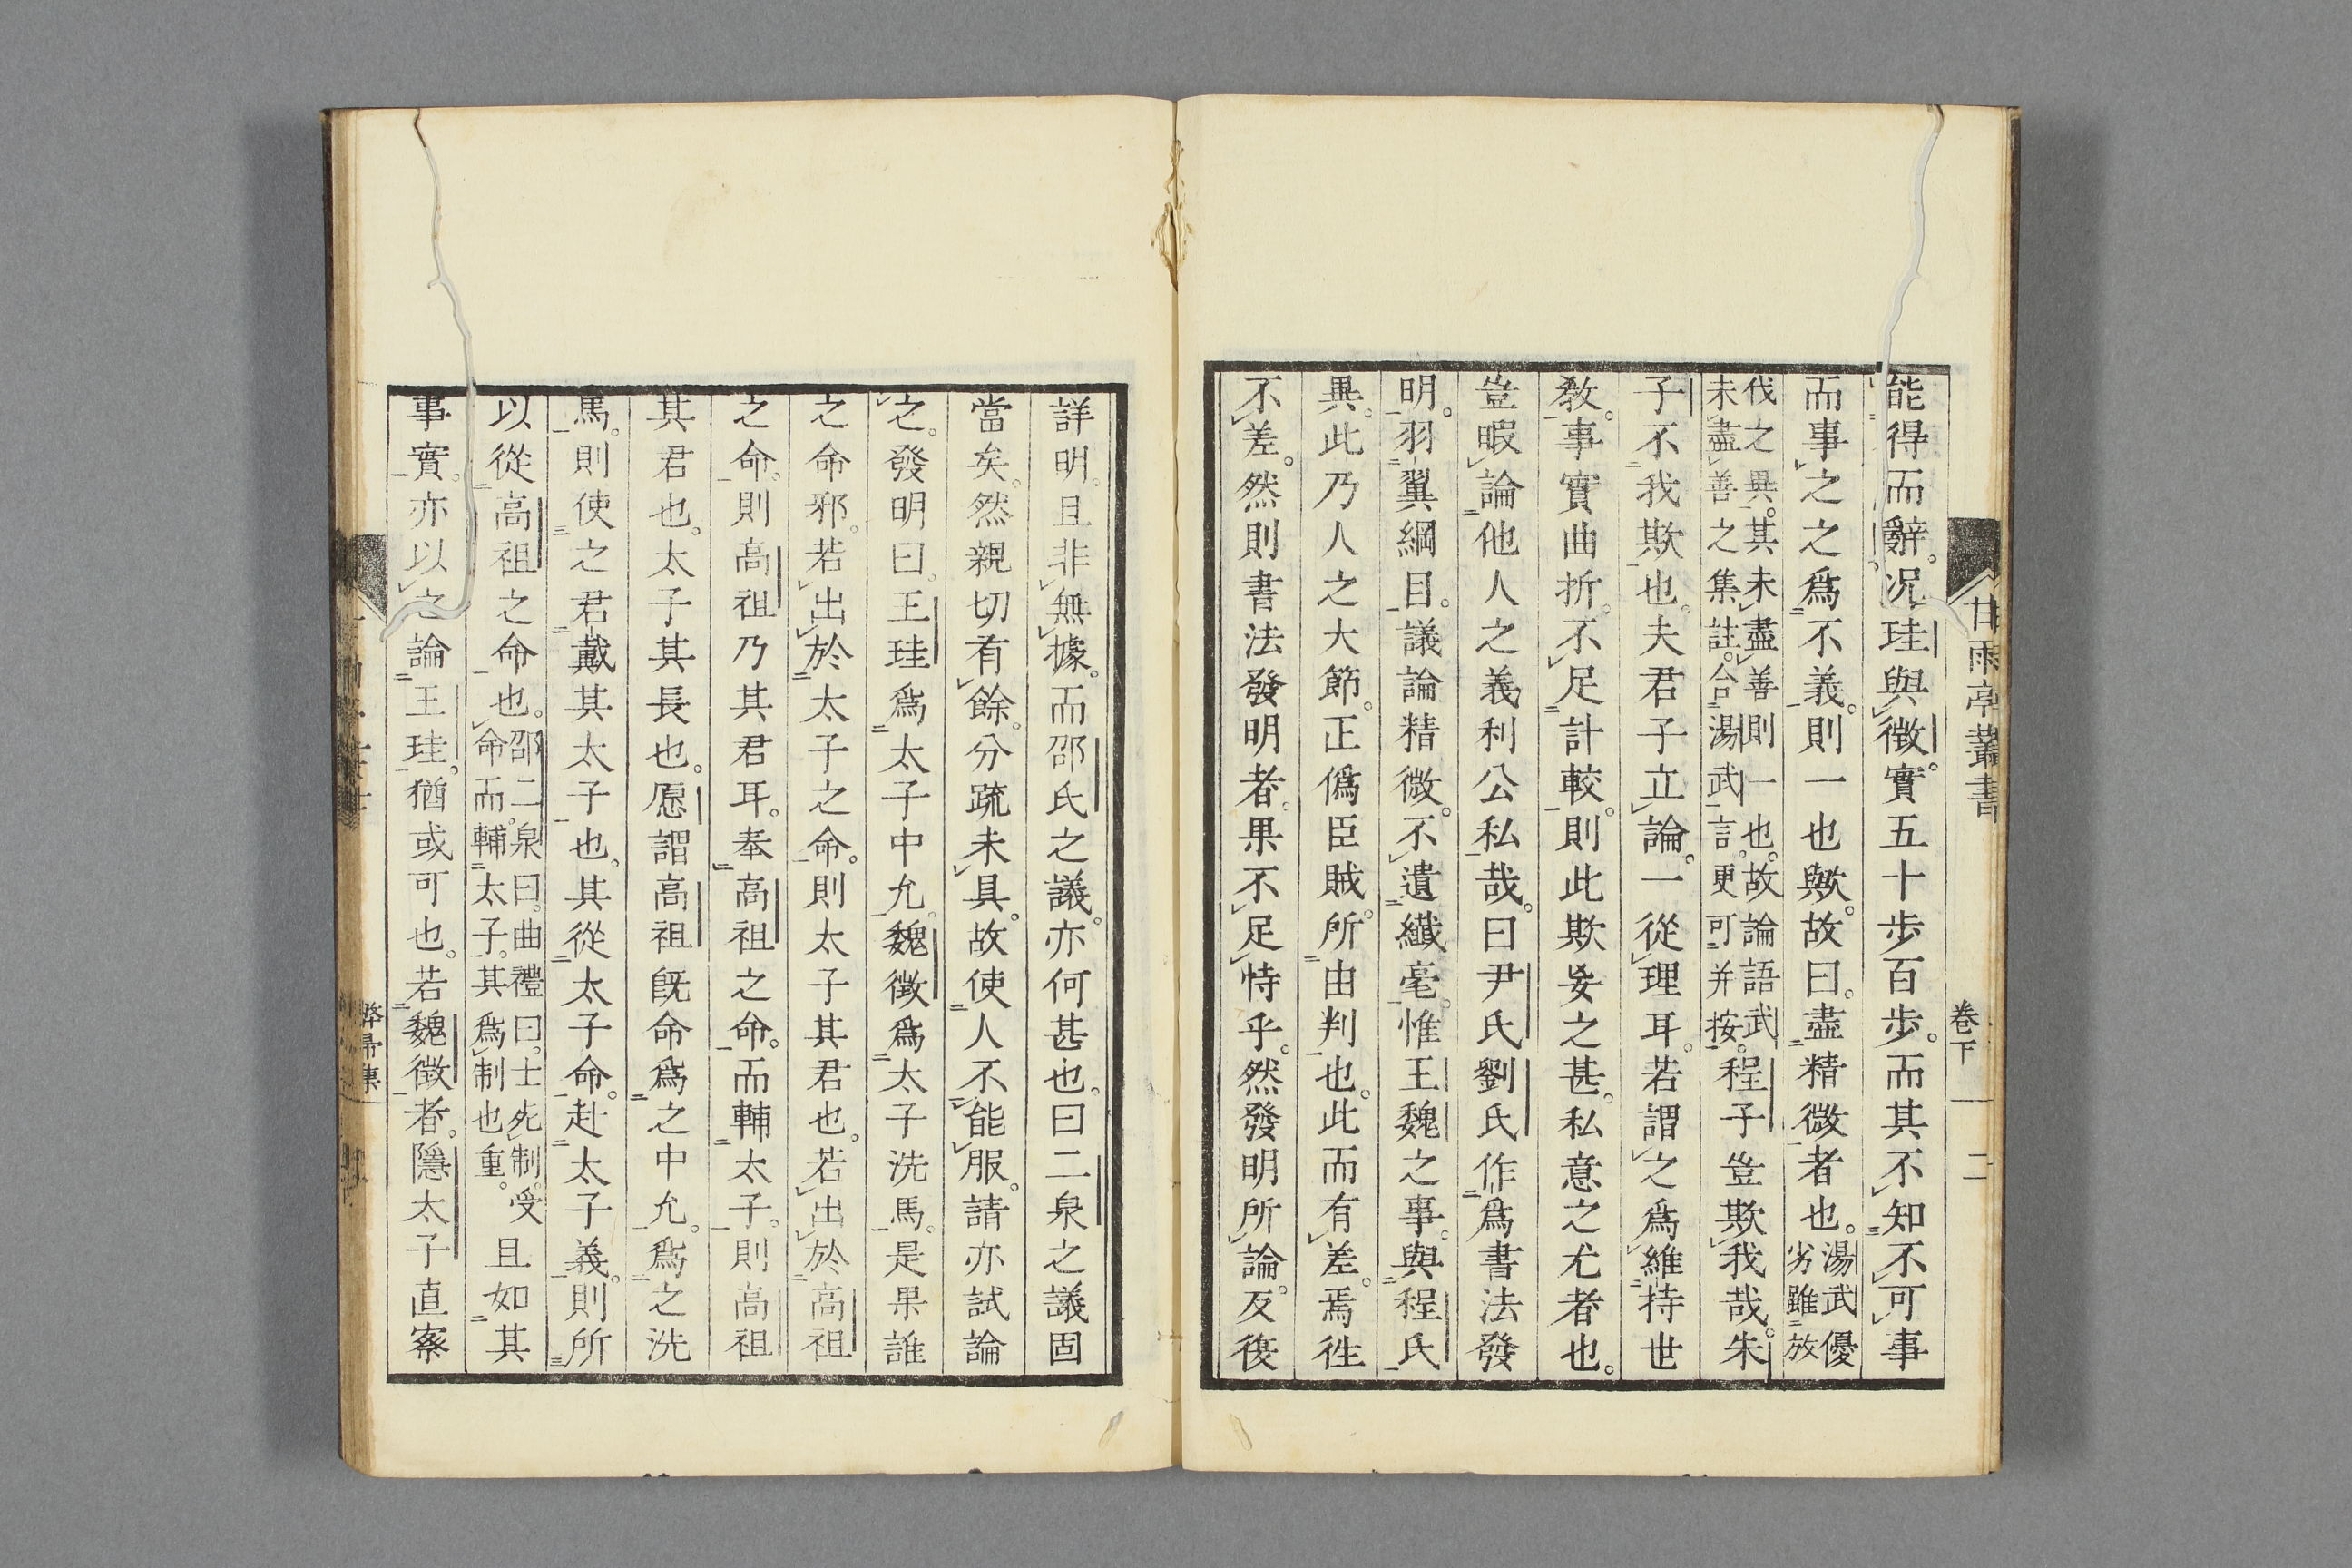 甘雨亭叢書
卷下
二
能得而辭。況珪與徵。實五十步百步。而其不知不可事
而事之之爲不義。則一也歟。故曰。盡精微者也。湯武優
劣雖放
伐之異。其未盡善則一也。故論語武
未盡善之集註。合湯武言。更可并按。程子豈欺我哉。朱
子不我欺也。夫君子立論。一從理耳。若謂之爲維持世
敎。事實曲折。不足計較。則此欺妄之甚。私意之尤者也。
豈暇論他人之義利公私哉。曰尹氏劉氏作爲書法發
明。羽翼綱目。議論精微。不遺纖毫。惟王魏之事。與程氏
異。此乃人之大節。正僞臣賊。所由判也。此而有差。焉徃
不差。然則書法發明者。果不足恃乎。然發明所論。反復
詳明。且非無據。而邵氏之議。亦何甚也。曰二泉之議固
當矣。然親切有餘。分疏未具。故使人不能服。請亦試論
之。發明曰。王珪爲太子中允。魏徵爲太子洗馬。是果誰
之命邪。若出於太子之命。則太子其君也。若出於高祖
之命。則高祖乃其君耳。奉高祖之命。而輔太子。則高祖
其君也。太子其長也。愿謂高祖旣命爲之中允。爲之洗
馬。則使之君戴其太子也。其從太子命。赴太子義。則所
以從高祖之命也。邵二泉曰。曲禮曰。士死制。受
命而輔太子。其爲制也重。且如其
事實。亦以之論王珪。猶或可也。若魏徵者。隱太子直寀